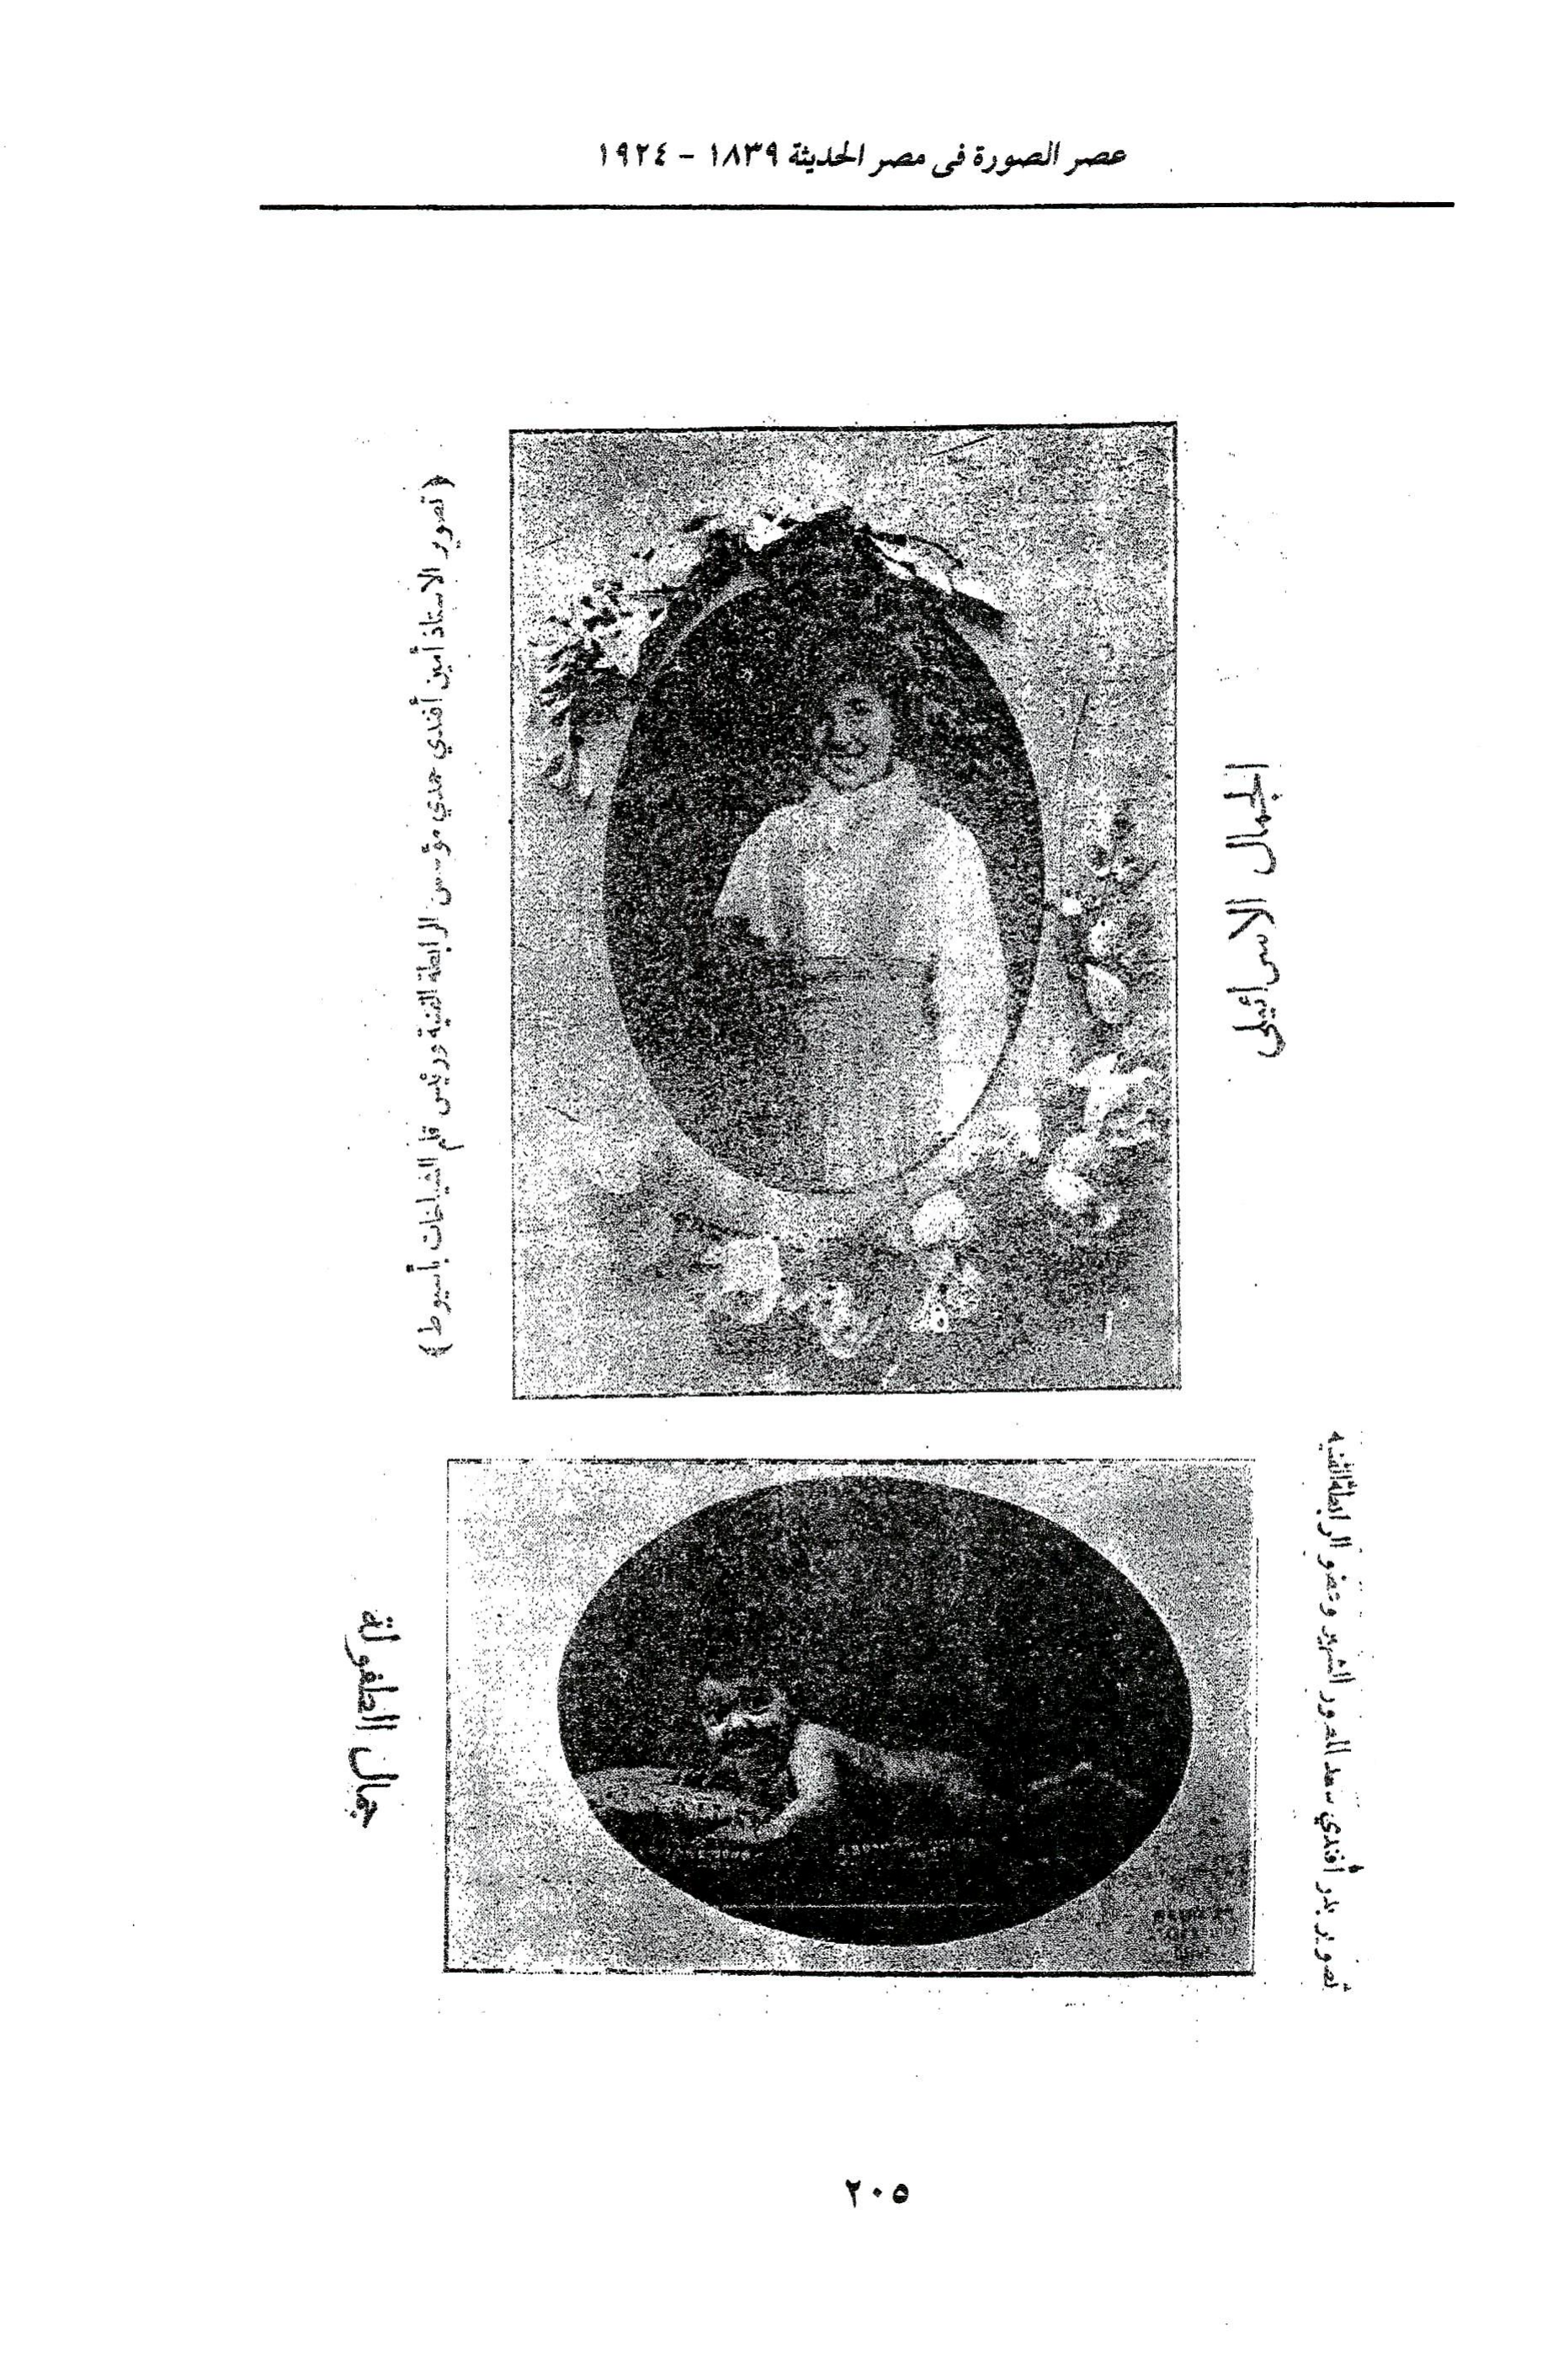 عصر الصورة فى مصر الحديثة ١٨٣٩ - ١٩٢٤
الجمال الاسرائيلى
(تصوير الاستاذ أمين أفندي حمدي مؤسس الرابطة الفنية ورئيس قلم الشياخات بأسيوط)
تصوير بدر أفندي سعد المصور الشهير وعضو الرابطة الفنية
جمال الطفولة
٢٠٥